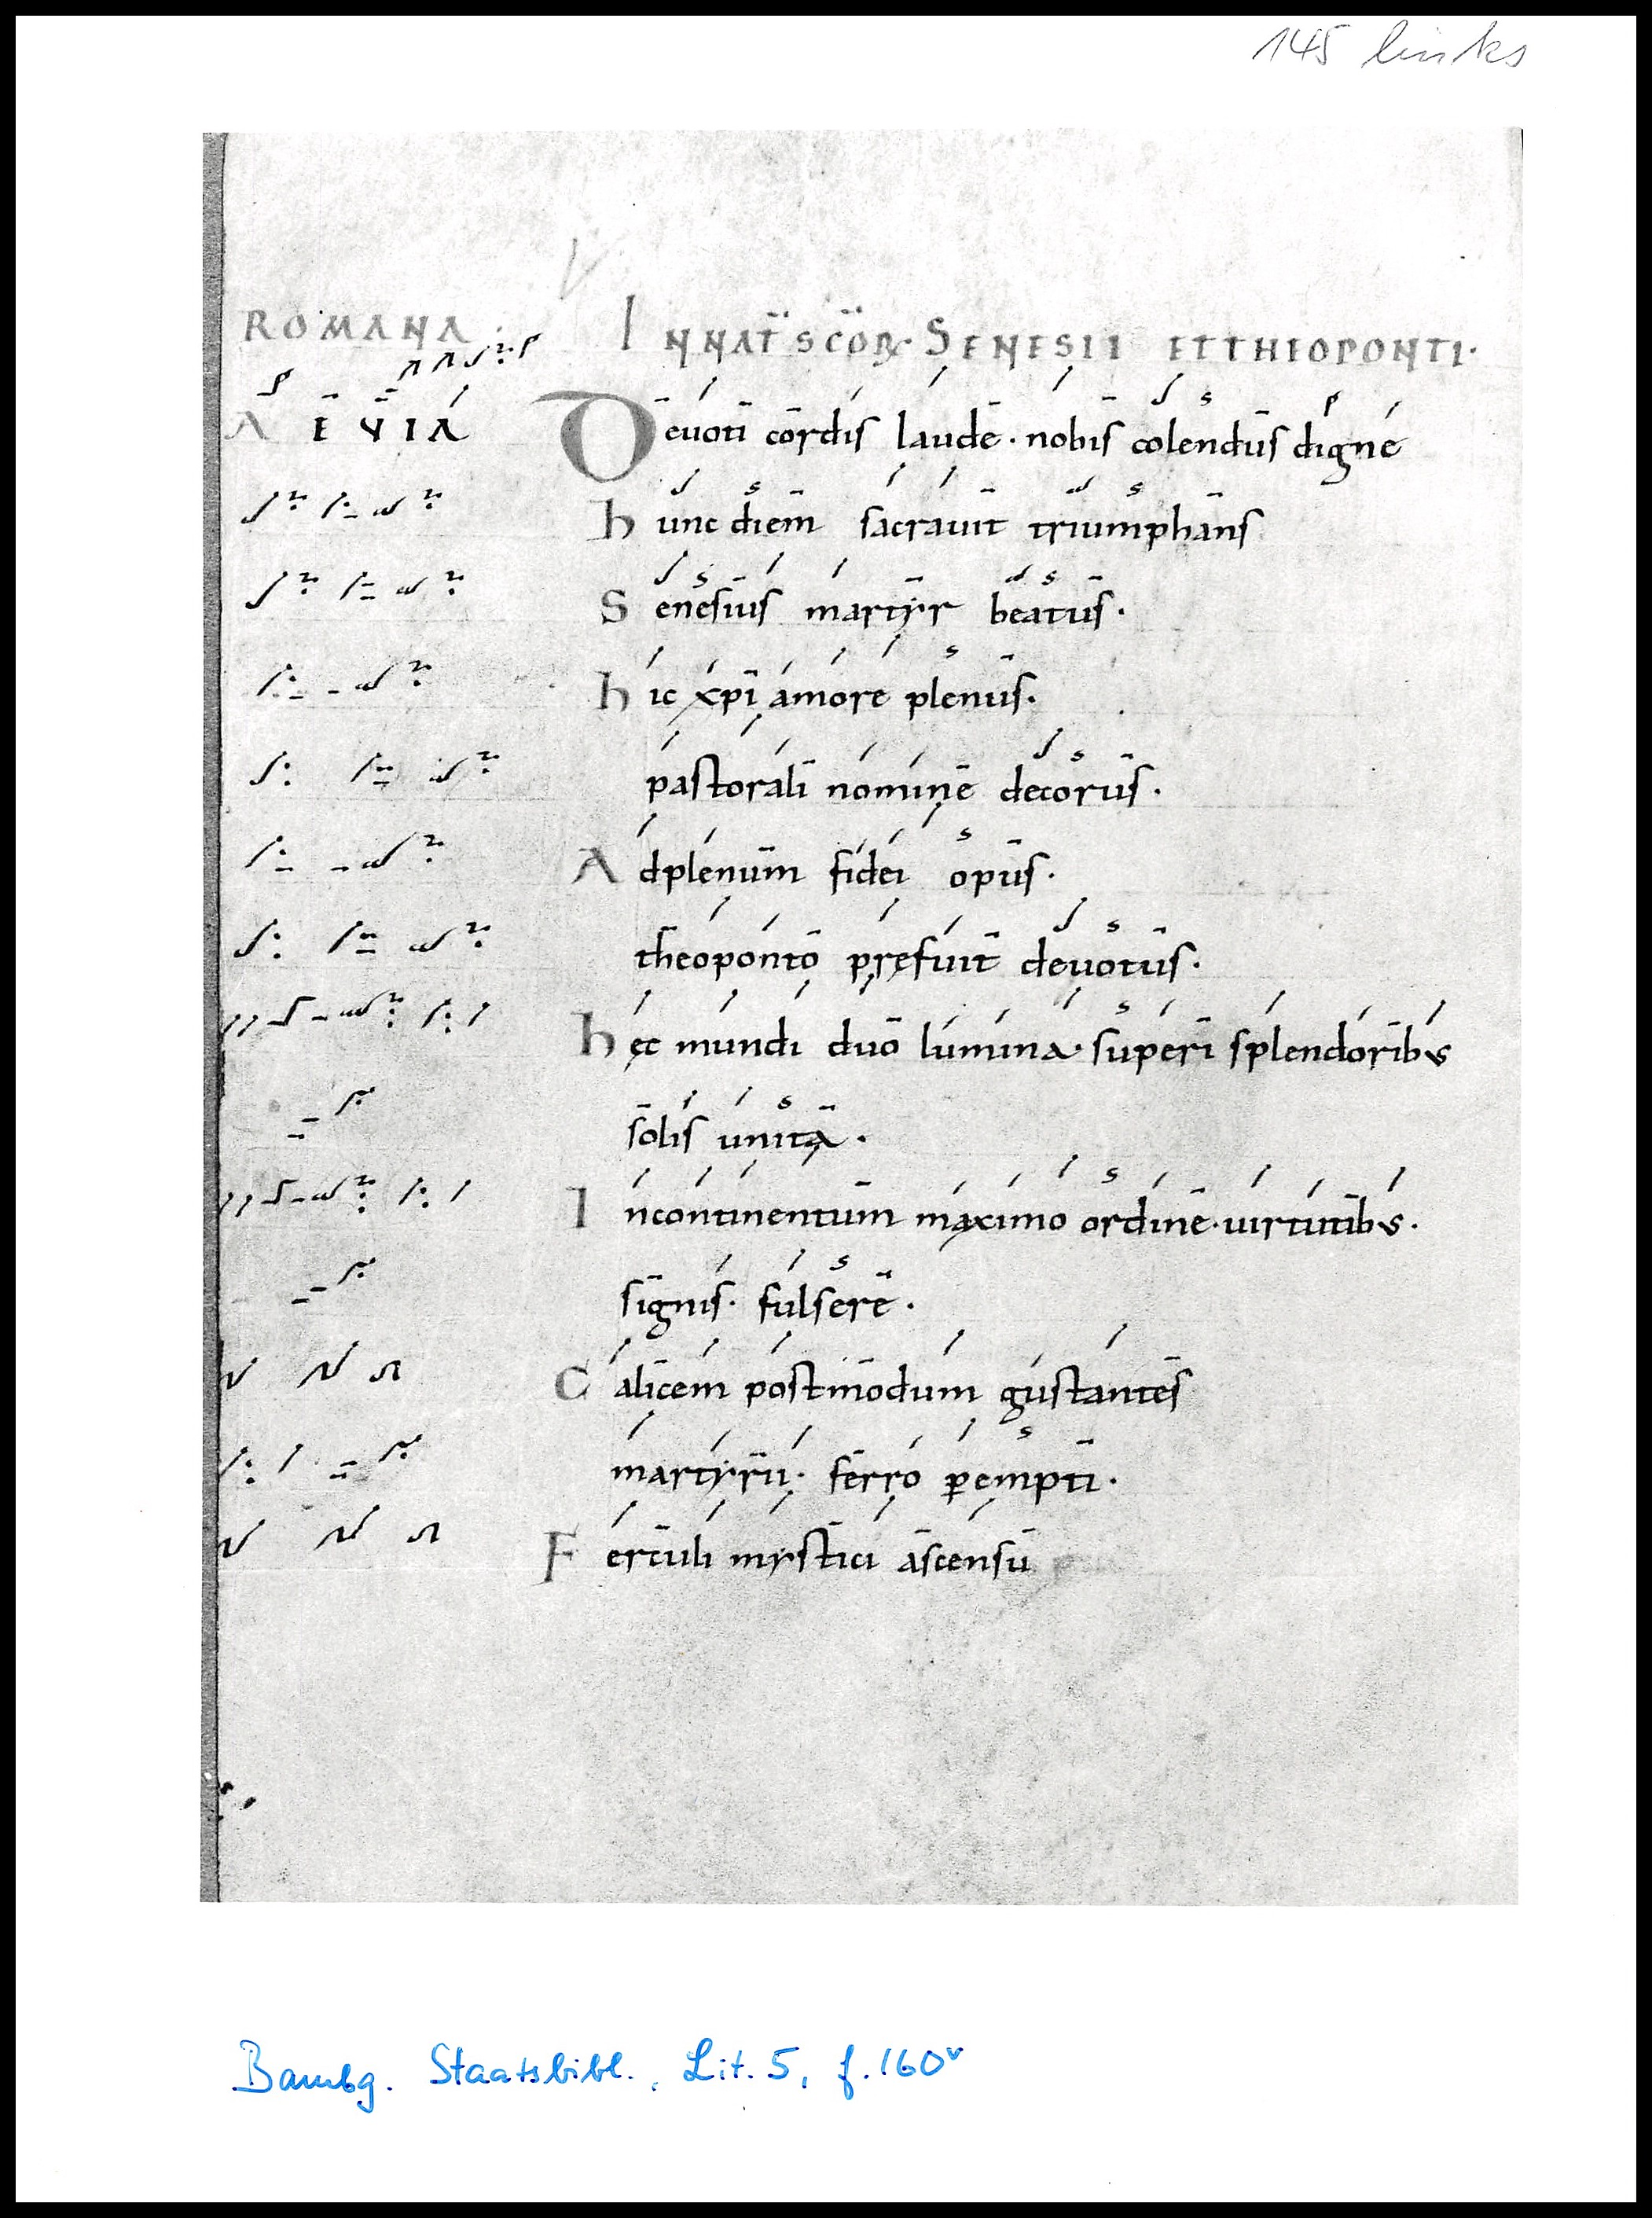 145 links
ROMANA
IN NAT SCOR. SENESII ET THEOPONTI.
A E V I A
Deuoti cordis laude. nobis colendus digne
hunc diem sacrauit triumphans
Senesius martyr beatus.
hic xpi amore plenus.
pastorali nomine decorus.
Adplenum fidei opus.
theoponto prefuit deuotus.
hęc mundi duo lumina. superi splendorib;
solis unita.
Incontinentum maximo ordine. uirtutib;.
signis. fulsere.
Calicem postmodum gustantes
martyrii. ferro pempti.
Ferculi mystici ascensu
Bambg. Staatsbibl., Lit. 5, f. 160v